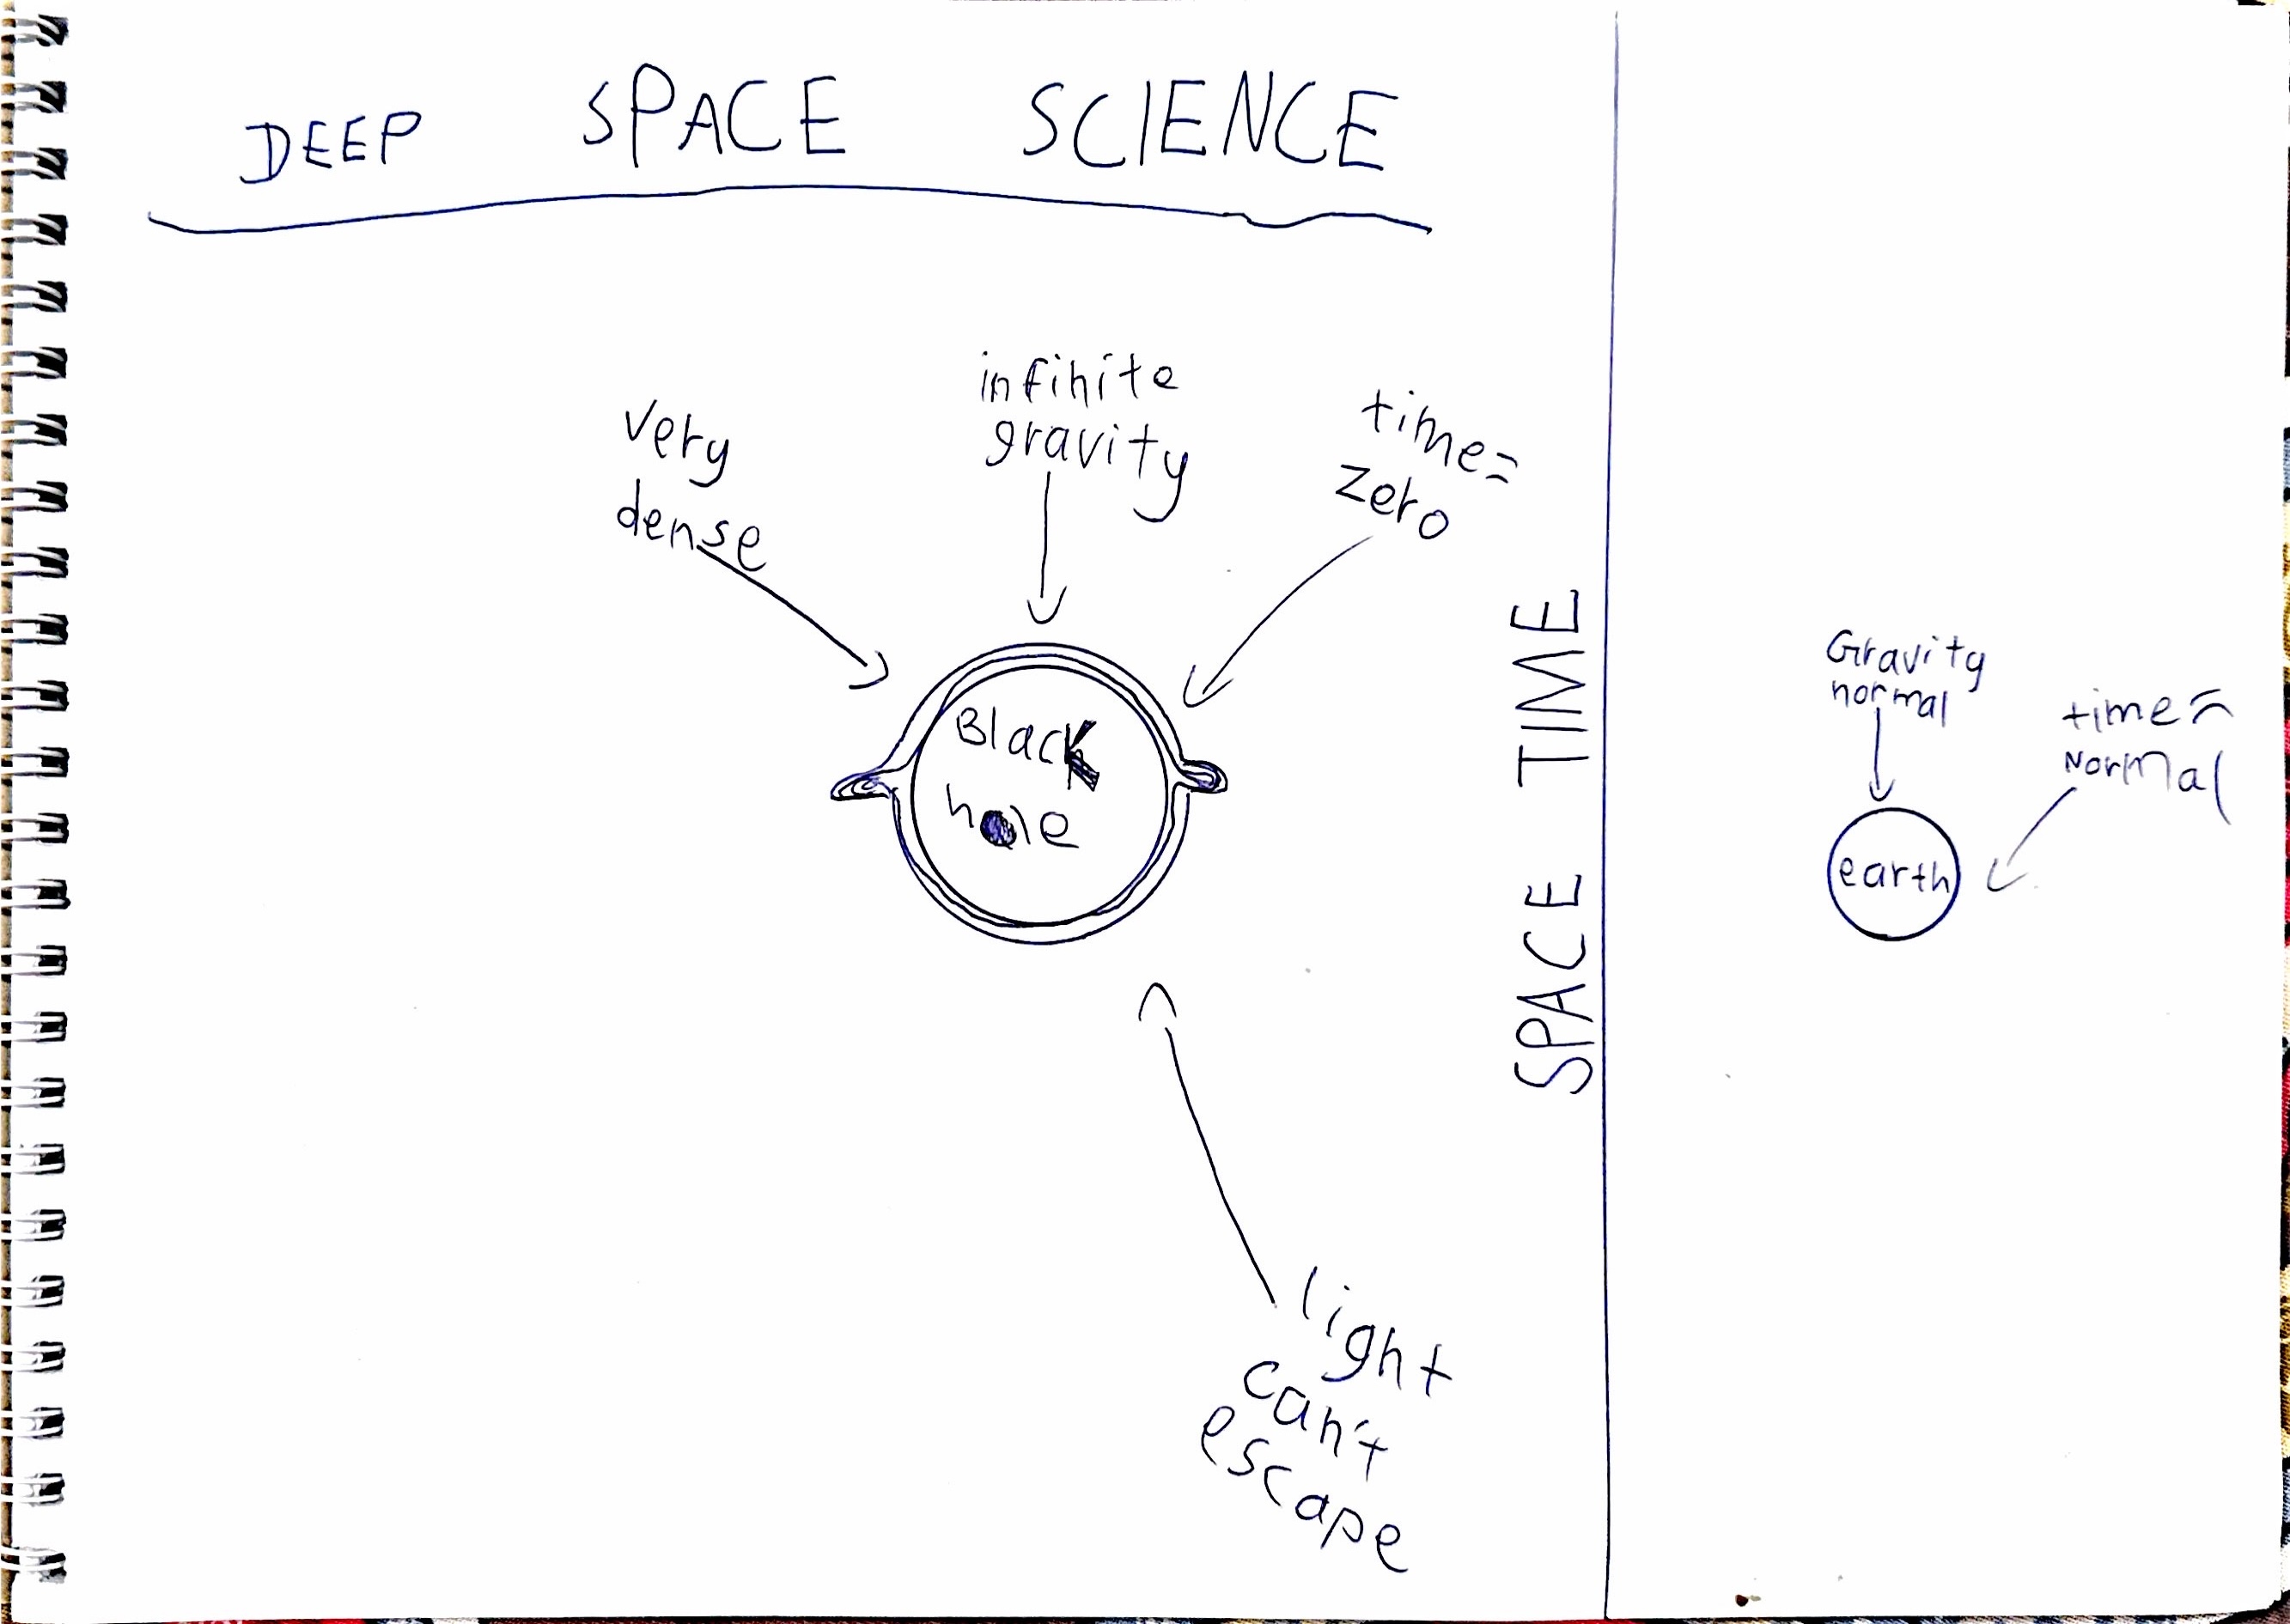 DEEP SPACE SCIENCE
Very
dense
infinite
gravity
time=
zero
Black
hole
light
can't
escape
SPACE TIME
Gravity
normal
time=
Normal
earth